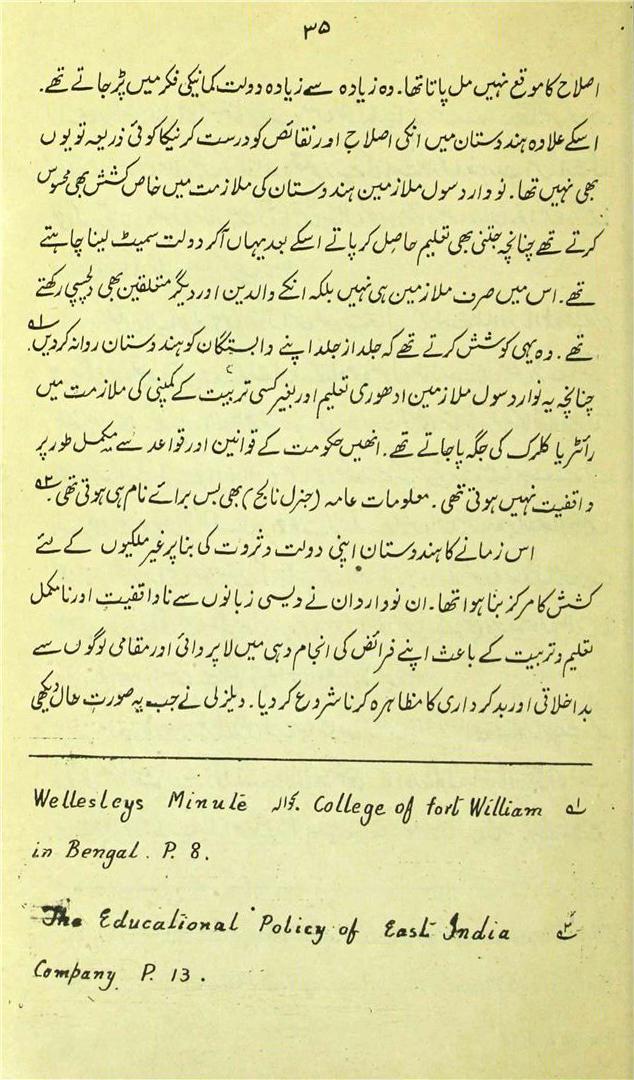 ۳۵
اصلاح کا موقع نہیں مل پاتا تھا۔ وہ زیادہ سے زیادہ دولت کمانیکی فکر میں پڑ جاتے تھے۔
اسکے علاوہ ہندستان میں انکی اصلاح اور نقائص کو درست کرنیکا کوئی ذریعہ تو یوں
بھی نہیں تھا۔ نووارد سول ملازمین ہندوستان کی ملازمت میں خاص کشش بھی محسوس
کرتے تھے چنانچہ جتنی بھی تعلیم حاصل کر پاتے اسکے بعد یہاں آکر دولت سمیٹ لینا چاہتے
تھے۔ اس میں صرف ملازمین ہی نہیں بلکہ انکے والدین اور دیگر متعلقین بھی دلچسپی رکھتے
تھے۔ وہ یہی کوشش کرتے تھے کہ جلد از جلد اپنے وابستگان کو ہندستان روانہ کردیں۔ ۱؎
چنانچہ یہ نووارد سول ملازمین ادھوری تعلیم اور بغیر کسی تربیت کے کمپنی کی ملازمت میں
رائٹر یا کلرک کی جگہ پا جاتے تھے۔ انھیں حکومت کے قوانین اور قواعد سے مکمل طور پر
واقفیت نہیں ہوتی تھی۔ معلومات عامہ (جنرل نالج) بھی بس برائے نام ہی ہوتی تھی۔ ۲؎
اس زمانے کا ہندوستان اپنی دولت و ثروت کی بنا پر غیر ملکیوں کے لئے
کشش کا مرکز بنا ہوا تھا۔ ان نوواردان نے دیسی زبانوں سے ناواقفیت اور نامکمل
تعلیم و تربیت کے باعث اپنے فرائض کی انجام دہی میں لاپروائی اور مقامی لوگوں سے
بداخلاقی اور بدکرداری کا مظاہرہ کرنا شروع کر دیا۔ ویلزلی نے جب یہ صورتِ حال دیکھی
۱؎ Wellesleys Minute بحوالہ College of fort William
in Bengal. P. 8.
۲؎ The Educational Policy of East India
Company P. 13.